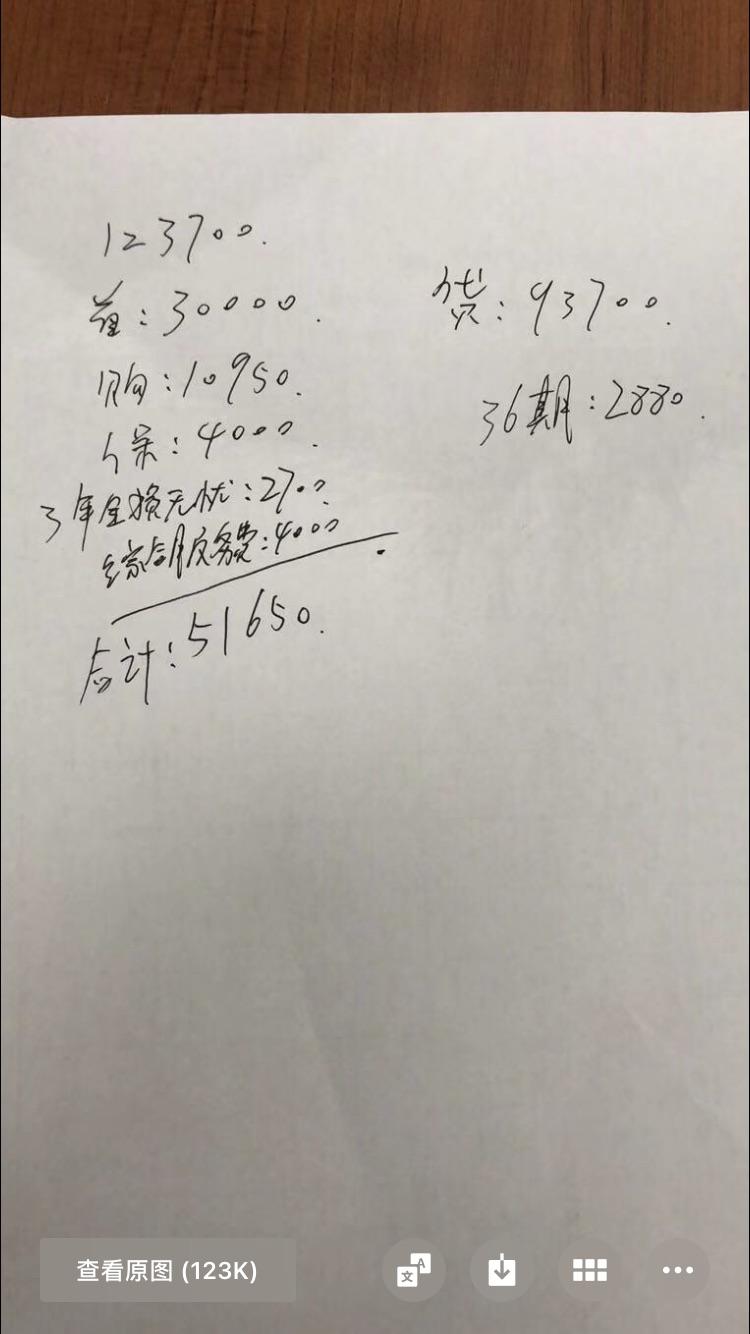 123700.
首:30000.
贷:93700.
购:10950.
36期:2880.
保:4000.
3年全损无忧:2700.
综合服务费:4000.
合计:51650.
查看原图 (123K)